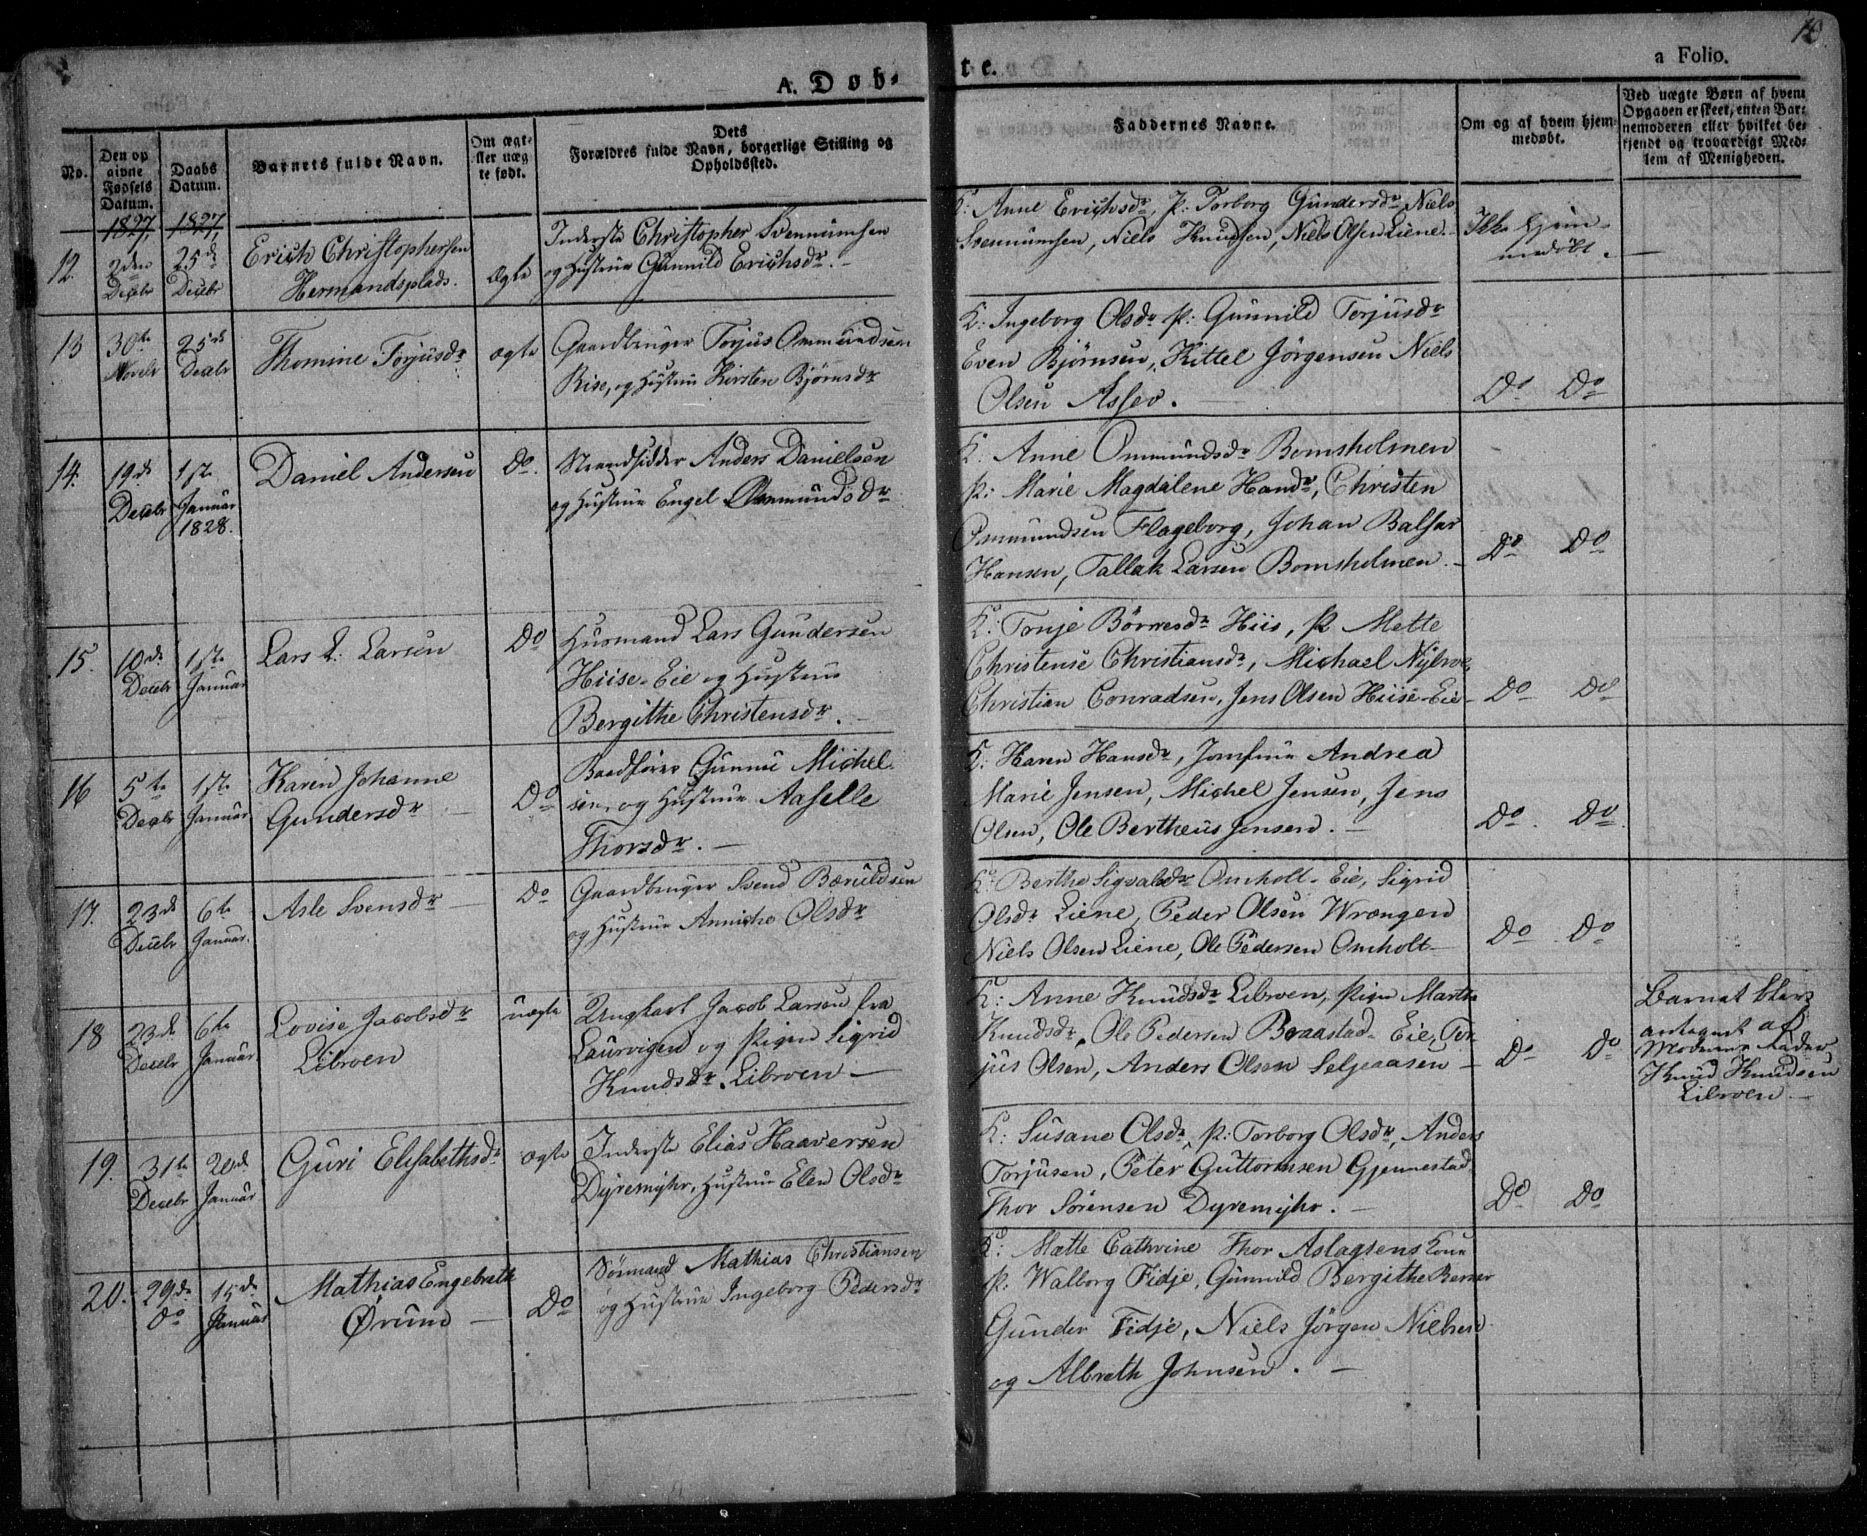 10.
A. Døb-
te.
a Folio.
No.
Den op
givne
Fødsels
Datum.
Daabs
Datum.
Barnets fulde Navn.
Om ægt-
eller uæg
te født.
Dets
Forældres fulde Navn, borgerlige Stilling og
Opholdssted.
Faddernes Navne.
Om og af hvem hjem-
medøbt.
Ved uægte Børn af hvem
Opgaven er skeet, enten Bar-
nemoderen eller hvilket be-
kjendt og troværdigt Med-
lem af Menigheden.
1827. 1827.
12. 2den Decbr 25de Decbr
Erich Christophersen
Hermandsplads.
Ægte
Inderste Christopher Svennumsen
og Hustrue Gunnild Erichsdr. -
K: Anne Erichsdr, p: Torborg Gundersdr, Niels
Svennumsen, Niels Knudsen, Niels Olsen Liene. -
Ikke hjem-
medøbt. -
13 30te Novbr 25de Decbr
Thomine Torjusdr
ægte
Gaardbruger Torjus Ommundsen
Rise, og Hustrue Kirsten Bjørnsdr
K: Ingeborg Olsdr p: Gunnild Torjusdr
Even Bjørnsen, Kittel Jörgensen Niels
Olsen Assev.
Do Do
14. 19de Decbr 1ste Januar 1828.
Daniel Andersen
Do.
Strandsidder Anders Danielsen
og Hustrue Engel Ommundsdr
K. Anne Ommundsdr Bomsholmen
p: Marie Magdalene Handr, Christen
Ommundsen Flageborg, Johan Balsar
Hansen, Tallak Larsen Bomsholmen. -
Do Do
15. 10de Decbr 1ste Januar
Lars L. Larsen
Do
Husmand Lars Gundersen
Hiise-Eie og Hustrue
Bergithe Christensdr. -
K: Tonje Börresdr Hiis, p Mette
Christense Christiansdr, Michael
Christian Conradsen, Jens Olsen Hiise-Eie-
Do Do
16 5te Decbr 1ste Januar
Karen Johanne
Gundersdr -
Do
Baadfører Gunne Michel-
sen, og Hustrue Aaselle
Thorsdr. -
K: Karen Hansdr, Jomfrue Andrea
Marie Jensen, Michel Jensen, Jens
Olsen, Ole Bertheus Jensen. -
Do. Do.
17. 23de Decbr 6te Januar.
Asle Svensdr -
Do
Gaardbruger Svend Bæruldsen
og Hustrue Anniche Olsdr
K: Berthe Sigvaldsdr Omholt-Eie, Sigrid
Olsdr Liene, Peder Olsen Wrængen
Niels Olsen Liene, Ole Pedersen Omholt-
Do Do
18 23de Decebr 6te Januar
Lovise Jacobsdr
Libroen
uægte
Ungkarl Jacob Larsen fra
Laurvigen og Pigen Sigrid
Knudsdr Libroen -
K: Anne Knudsdr Libroen, Pigen Marthe
Knudsdr, Ole Pedersen Braastad-Eie, Tor-
jus Olsen, Anders Olsen Seljeaasen -
Do Do
Barnet blev
antegnet af
Moderens Fader
Knud Knudsen
Libroen. -
19. 31te Decebr 20de Januar
Guri Elisabethsdr
ægte
Inderste Elias Haaversen
Dyremyhr, Hustrue Elen Olsdr
K: Susane Olsdr, p: Torborg Olsdr, Anders
Torjusen, Peter Guttormsen Gjennestad
Thor Sörensen Dyremyhr. -
Do Do
20. 29de Do 15de Januar
Mathias Engebreth
Ørum -
Do
Sömand Mathias Christiansen
og Hustrue Ingeborg Pedersdr
K: Mætte Cathrine Thor Aslagsens Kone
p. Walborg Fidje, Gunnild Bergithe
Gunder Fidje, Niels Jörgen Nielsen
og Albreth Johnsen. -